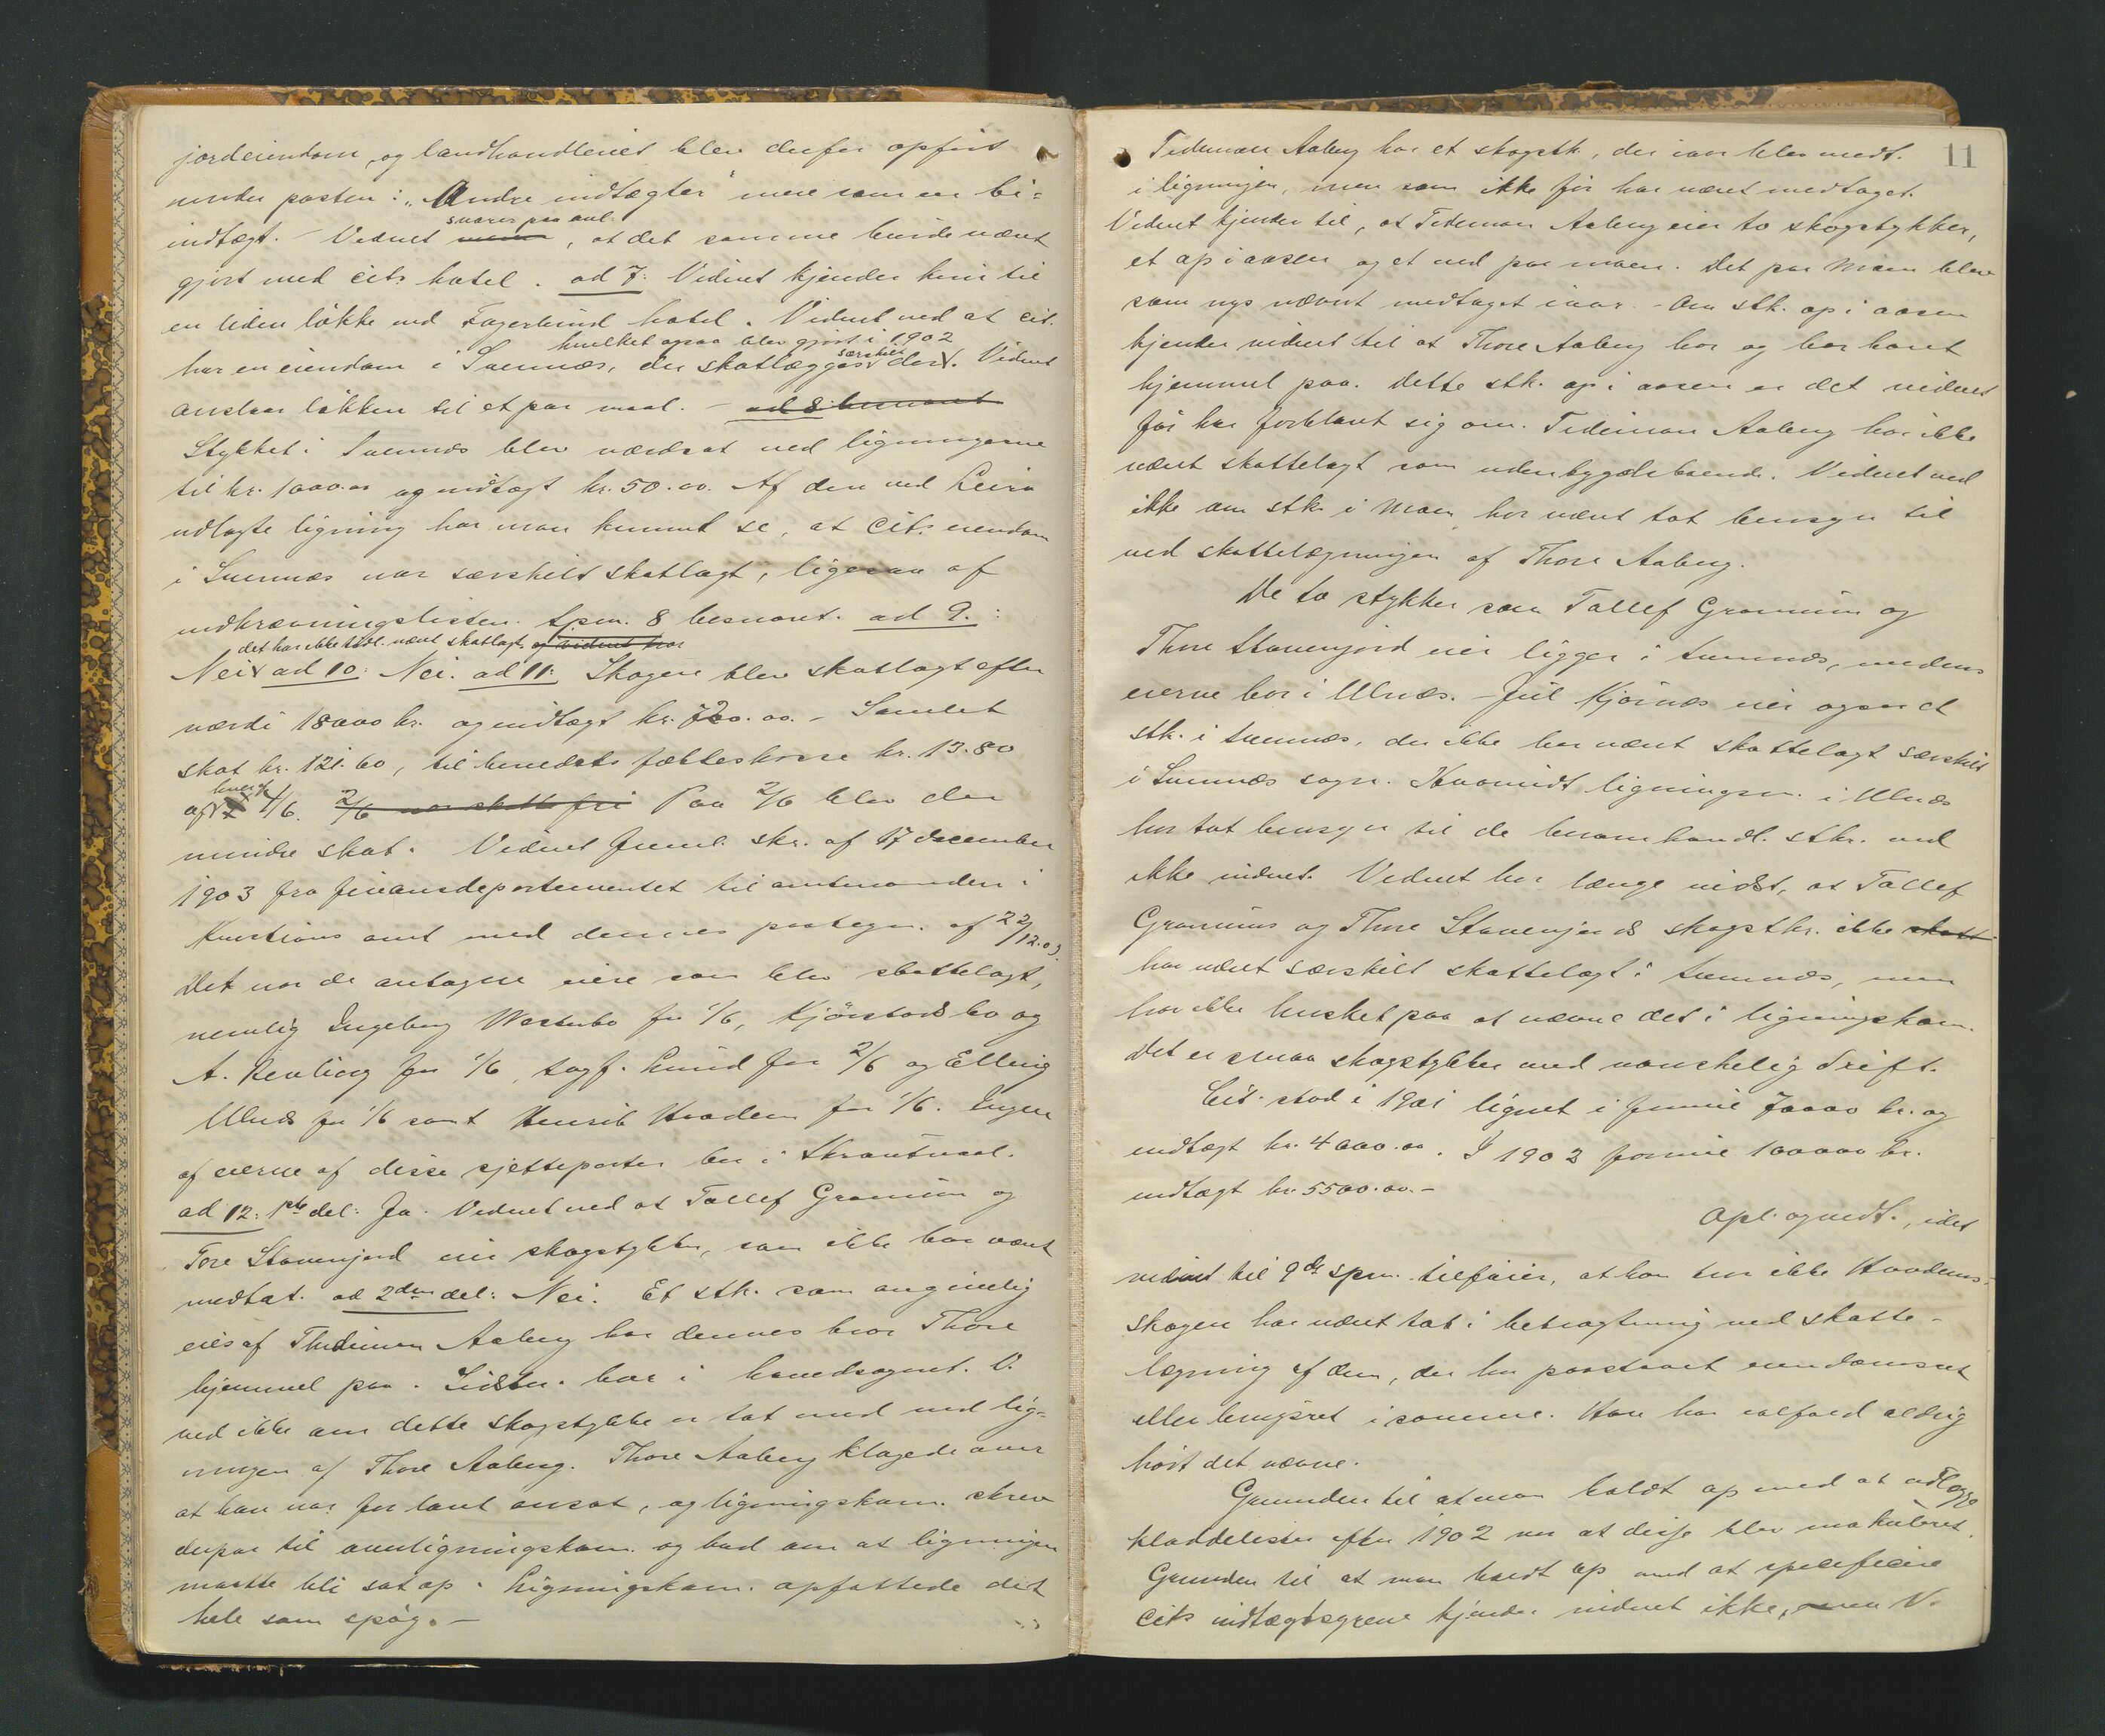 jordeiendom, og landhandleriet blev derfor opført
under posten: "Andre indtægter" mere som en bi-
svarer paa anl.
indtægt. - Vidnet , at det samme burde været
gjort med cits hotel. ad 7: Vidnet kjender kun til
en liden løkke ved Fagerlund hotel. Vidnet ved at cit.
hvilket ogsaa blev gjort i 1902
har en eiendom i Svennæs, der skatlægges særskilt der. Vidnet
anslaar løkken til et par maal. - ad 8. besvaret
Stykket i Svennæs blev værdsat ved ligningerne
til kr. 1000.00 og indtægt kr. 50.00. Af den ved Leira
udlagte ligning har man kunnet se, at cits eiendom
i Svennæs var særskilt skatlagt, ligesaa af
indkrævningslisten. Spm. 8 besvaret. ad 9.:
det har ikke været skatlagt, og vidnet har
Nei ad 10: Nei. ad 11: Skogen blev skatlagt efter
værdi 18000 kr. og indtægt kr. 720.00. - Samlet
skat kr. 121.60, til herredets fælleskasse kr. 13.80
hver
af 1/6. 2/6 var skattefri Paa 2/6 blev der
mindre skat. Vidnet freml. skr. af 17 december
1903 fra finansdepartementet til amtmanden i
Kristians amt med dennes paategn. af 22/12.03.
Det var de antagne eiere som blev skattelagt,
nemlig Ingeborg Westerbo for 1/6, Kjørstad bo og
A. for 1/6, sagf. Lund for 2/6 og Elling
Ulnæs for 1/6 samt Henrik Hvadem for 1/6. Ingen
af eierne af disse sjetteparter bor i Skrautvaal.
ad 12: 1ste del: Ja. Vidnet ved at Tollef Granum og
Tore Stavenjord eier skogstykker, som ikke har været
medtat. ad 2den del: Nei. Et stk. som angivelig
eies af Thideman Aaberg har dennes bror Thore
hjemmel paa. Sidstn. bor i hovedsognet. V.
ved ikke om dette skogstykke er tat med ved lig-
ningen af Thore Aaberg. Thore Aaberg klagede over
at han var for lavt ansat, og ligningskom. skrev
derpaa til overligningskom. og bad om at ligningen
maatte bli sat op. Ligningskom. opfattede det
hele som spøg. -
11
Tideman Aaberg har et skogstk., der iaar blev medt.
i ligningen, men som ikke før har været medtaget.
Vidnet kjender til, at Tideman Aaberg eier to skogstykker,
et op i aasen og et ned paa moen. Det paa Moen blev
som nys nævnt medtaget iaar. - Om stk. op i aasen
kjender vidnet til at Thore Aaberg har og har havt
hjemmel paa. Dette stk. op i aasen er det vidnet
før har forklaret sig om. Tideman Aaberg har ikke
været skattelagt som udenbygdsboende. Vidnet ved
ikke om stk. i Moen har været tat hensyn til
ved skattelægningen af Thore Aaberg.
De to stykker som Tollef Granum og
Thore Stavenjord eier ligger i Svennæs, medens
eierne bor i Ulnæs. - Juul Kjørnæs eier ogsaa et
stk. i Svennæs, der ikke har været skattelagt særskilt
i Svennæs sogn. Hvorvidt ligningsm. i Ulnæs
har tat hensyn til de heromhandl. stkr. ved
ikke vidnet. Vidnet har længe vidst, at Tollef
Granums og Thore Stavenjords skogstkr. ikke skatt
har været særskilt skattelagt i Svennæs, men
har ikke husket paa at nævne det i ligningskom.
Det er smaa skogstykker med vanskelig drift.
Cit. stod i 1901 lignet i formue 70000 kr. og
indtægt kr. 4000.00. I 1903 formue 100000 kr.
indtægt kr. 5500.00. -
Opl. og vedt., idet
vidnet til 9de spm. tilføier, at han tror ikke Hvadems-
skogen har været tat i betragtning ved skatte-
lægning af dem, der har paastaaet eiendomsret
eller brugsret i samme. Han har ialfald aldrig
hørt det nævne.
Grunden til at man holdt op med at udlægge
kladdelister efter 1902 var at disse blev makuleret.
Grunden til at man holdt op med at specificere
cits indtægtsgrene kjender vidnet ikke, men V.